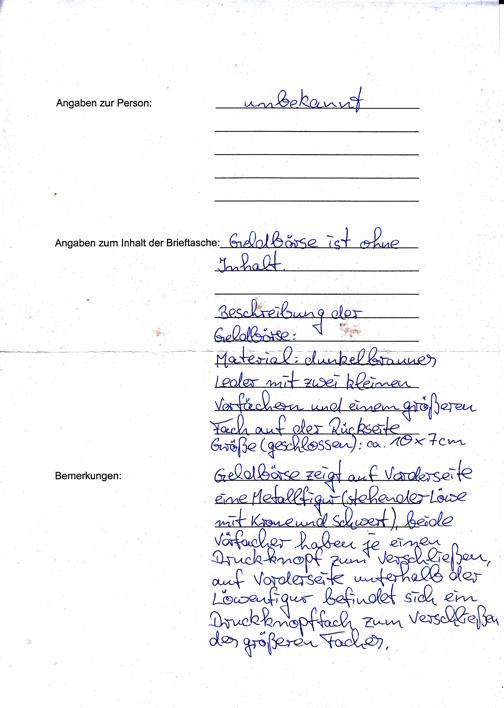 Angaben zur Person: unbekannt
Angaben zum Inhalt der Brieftasche: Geldbörse ist ohne
Inhalt.
Beschreibung der
Geldbörse:
Material: dunkelbraunes
Leder mit zwei kleinen
Vorfächern und einem größeren
Fach auf der Rückseite
Größe (geschlossen): ca. 10 x 7 cm
Bemerkungen: Geldbörse zeigt auf Vorderseite
eine Metallfigur (stehender Löwe
mit Krone und Schwert), beide
Vorfächer haben je einen
Druckknopf zum Verschließen,
auf Vorderseite unterhalb der
Löwenfigur befindet sich ein
Druckknopffach zum Verschließen
des größeren Faches.